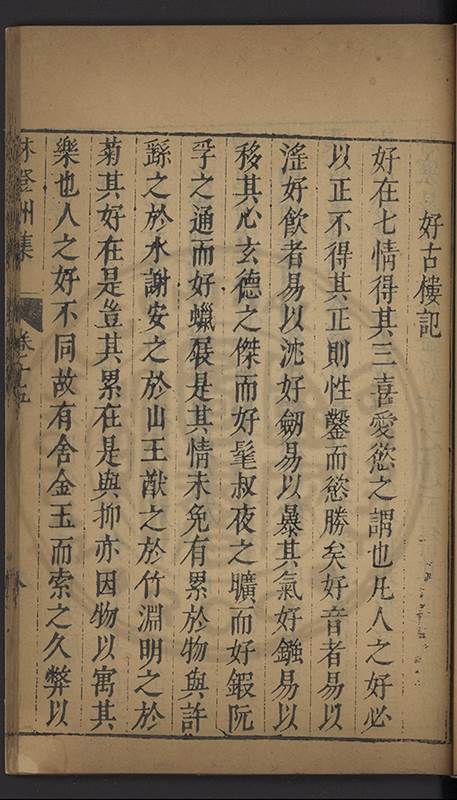 好古樓記
好在七情得其三喜愛慾之謂也凡人之好必
以正不得其正則性鑿而慾勝矣好音者易以
滛好飲者易以沈好劒易以暴其氣好鏹易以
移其心玄德之傑而好髦叔夜之曠而好鍜阮
孚之通而好蠟屐是其情未免有累於物與許
繇之於水謝安之於山王猷之於竹淵明之於
菊其好在是豈其累在是與抑亦因物以寓其
樂也人之好不同故有舍金玉而索之久弊以
林登州集
卷十五